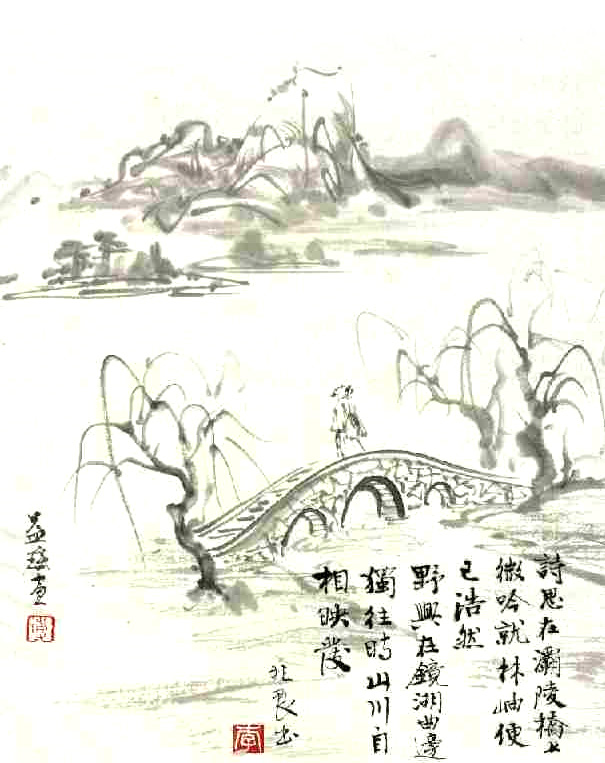 詩思在灞陵橋上
微吟就林岫便
已浩然
野興在鏡湖曲邊
獨往時山川自
相映發
李